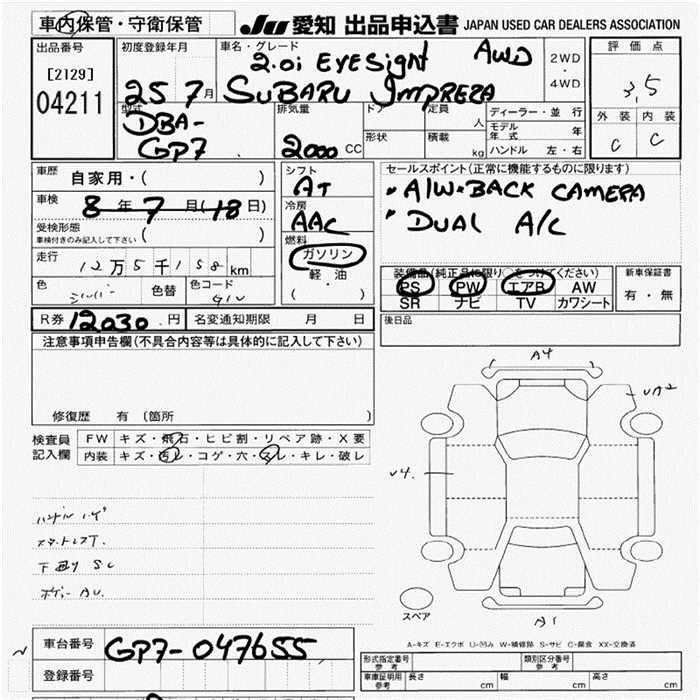 車内保管・守衛保管
JU 愛知 出品申込書 JAPAN USED CAR DEALERS ASSOCIATION
出品番号
[2129]
04211
初度登録年月
25 7月
車名・グレード
2.0i EYESight AWD
SUBARU IMPREZA
2WD
・
4WD
評価点
3,5
外装 内装
C C
型式
DBA-
GP7
排気量
2000 CC
ドア
形状
定員 人
積載 kg
ディーラー・並行
モデル年式 年
ハンドル 左・右
車歴 自家用・( )
車検 8年7月(18日)
受検形態
車検付きのみ記入して下さい ( )
走行 12万5千158 km
色 シルバー 色替 色コード G1U
シフト
AT
冷房
AAC
燃料
ガソリン
軽・油
( )
セールスポイント(正常に機能するものに限ります)
・A/W・BACK CAMERA
・DUAL A/C
装備品(純正品に限り○をつけてください)
PS PW エアB AW
SR ナビ TV カワシート
新車保証書
有・無
R券 12030.円 名変通知期限 月 日
後日品
注意事項申告欄(不具合内容等は具体的に記入して下さい)
修復歴 有 (箇所 )
検査員
記入欄
FW キズ・飛石・ヒビ割・リペア跡・X要
内装 キズ・汚レ・コゲ・穴・スレ・キレ・破レ
ハンドル ハゲ
下廻り SC
ボディー AU.
A4
UA2
U4.
A1
スペア
A-キズ E-エクボ U-凹み W-補修跡 S-サビ C-腐食 XX-交換済
車台番号 GP7-047655
登録番号
形式指定番号
参考
類別区分番号
参考
車庫証明用
参考
長さ cm 幅 cm 高さ cm